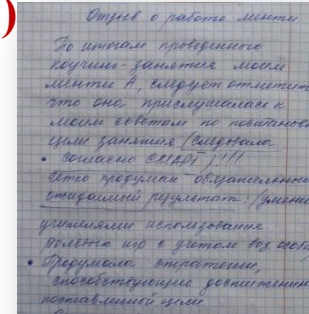 )
Отзыв о работе менти.
По итогам проведенного
коучинг-занятия моей
менти А, следует отметить
что она прислушалась к
моим советам по постановк
цели занятия (следовала
• согласно СМДОТ)!!!
Четко продуман обязательный
ожидаемый результат: (умени
учителями использование
ролевых игр с учетом воз. особ
• Продумала стратегии,
способствующие достижению
поставленной цели.